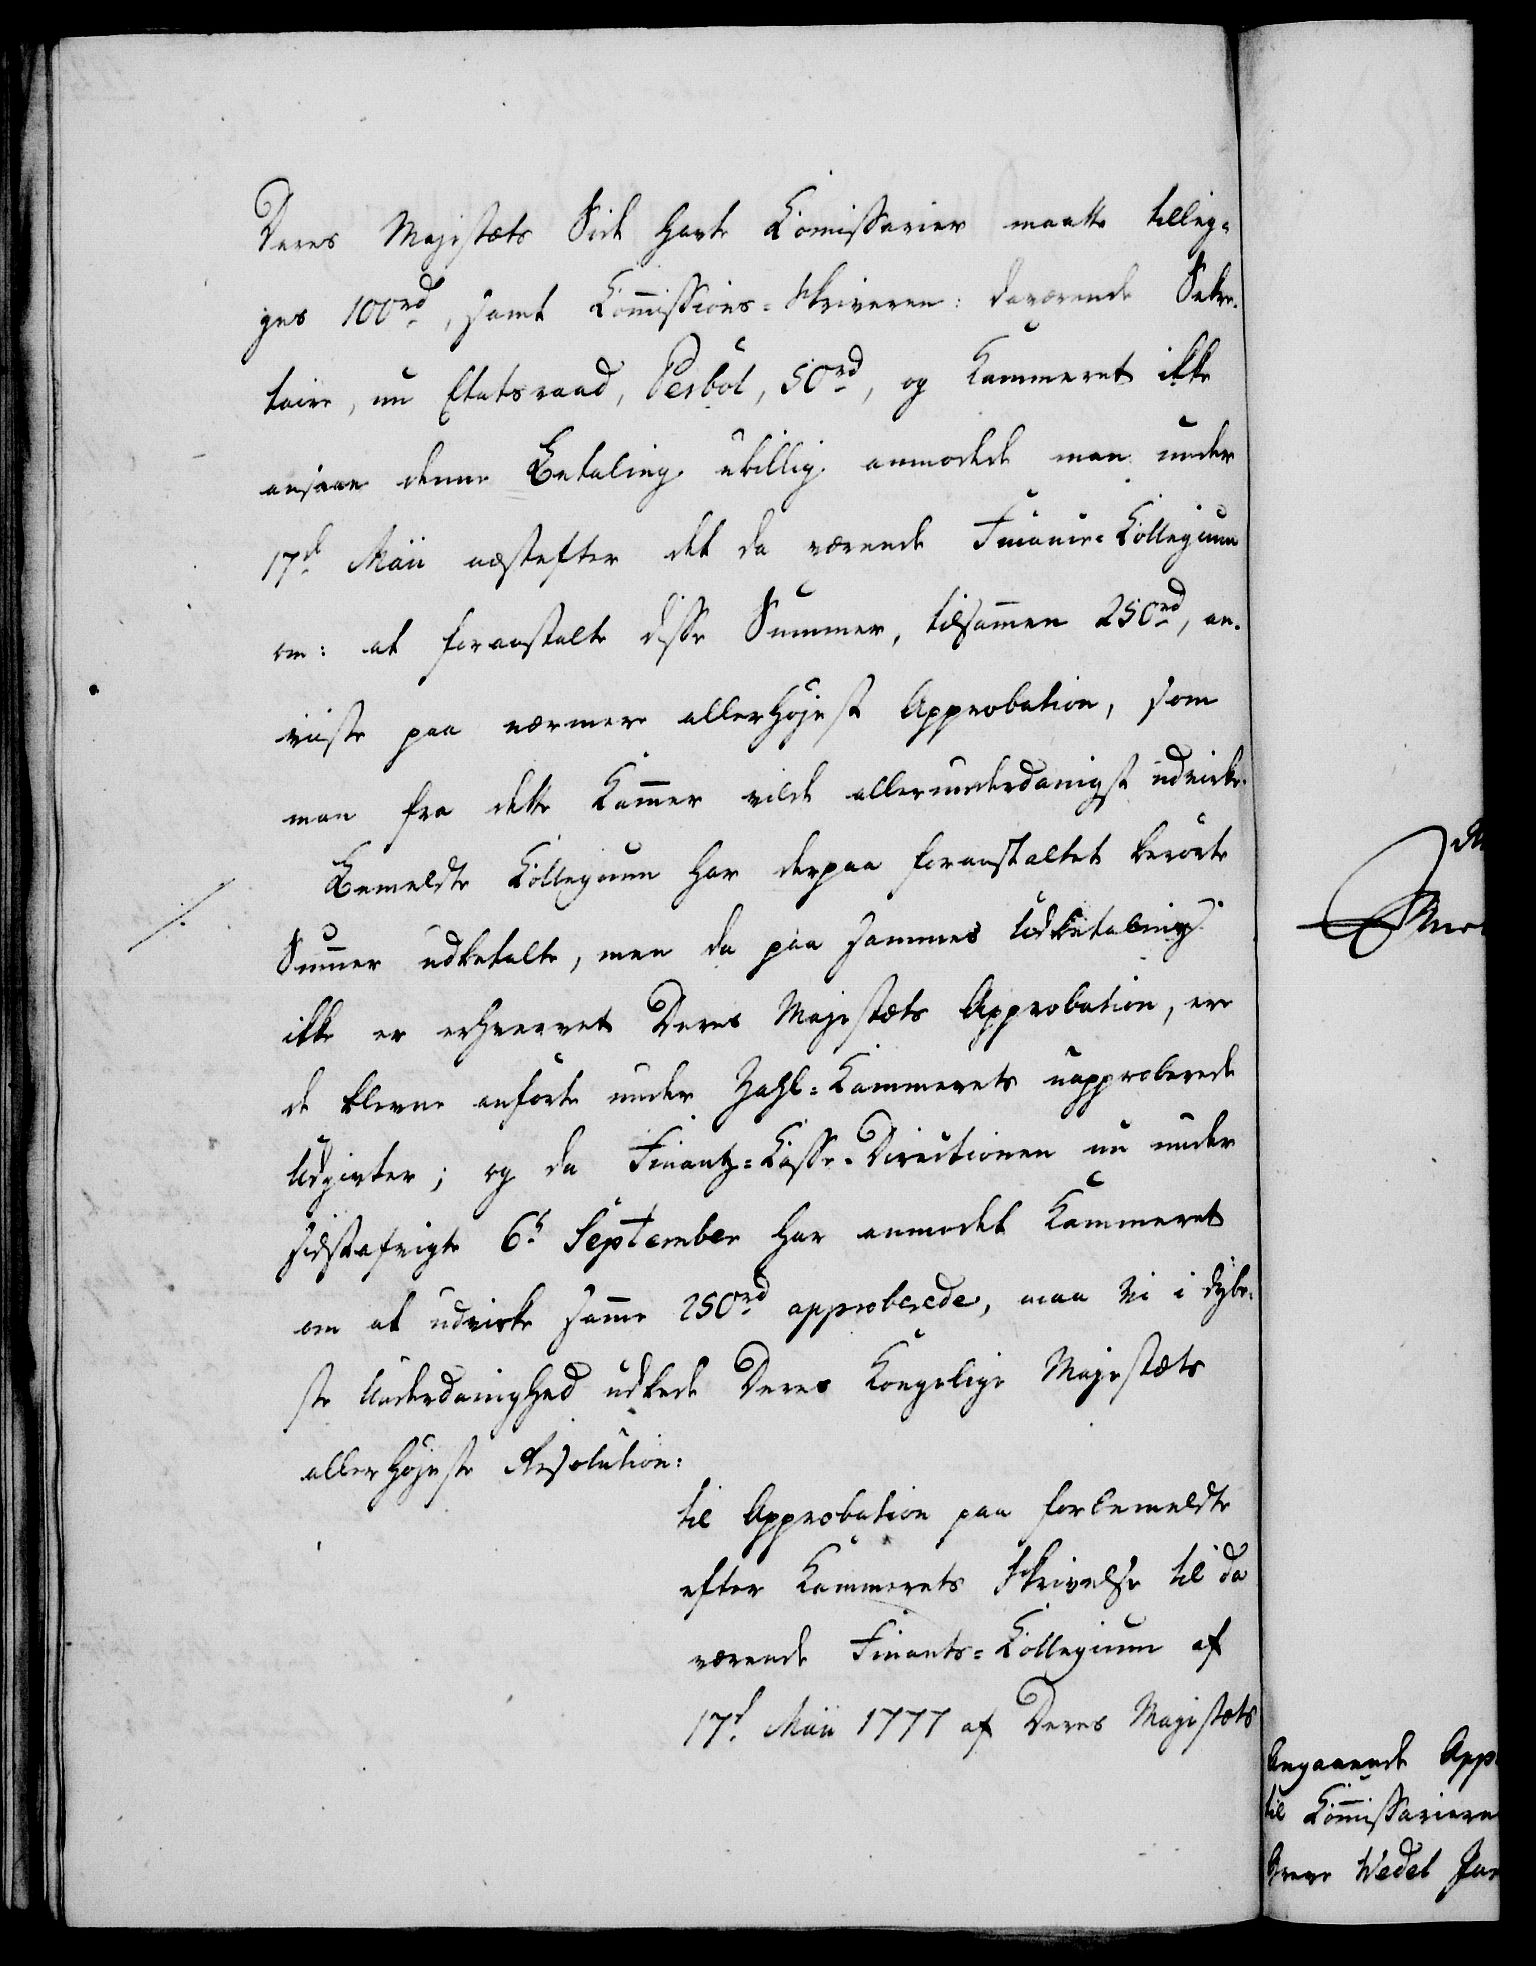 Deres Majestæts Side havte Commissarier maatte tilleg-
ges 100rd, samt Commissions-Skriveren: daværende Sekre-
taire, nu Etatsraad, Perbøl, 50rd, og Kammeret ikke
ansaae denne Betaling ubillig. anmodede man under
17d Maii næstefter det da værende Finants-Collegium
om: at foranstalte disse Summer, tilsammen 250rd, an-
viiste paa nærmere allerhøjest Approbation, som
man fra dette Kammer vilde allerunderdanigst udvirke.
Bemeldte Collegium har derpaa foranstaltet berørte
Summer udbetalte, men da paa sammes Udbetaling
ikke er erhvervet Deres Majestæts Approbation, ere
de blevne anførte under Zahl-Kammerets uapproberede
Udgivter; og da Finantz-Casse-Directionen nu under
sidstafvigte 6t September har anmodet Kammeret
om at udvirke samme 250rd approberede, maa Vi i dybe-
ste Underdanighed udbede Deres Kongelige Majestæts
allerhøjeste Resolution:
til Approbation paa forbemeldte
efter Kammerets Skrivelse til da
værende Finants-Collegium af
17d Maii 1777 af Deres Majestæts
Angaaende App
til Commissarierne
Greve Wedel Jar